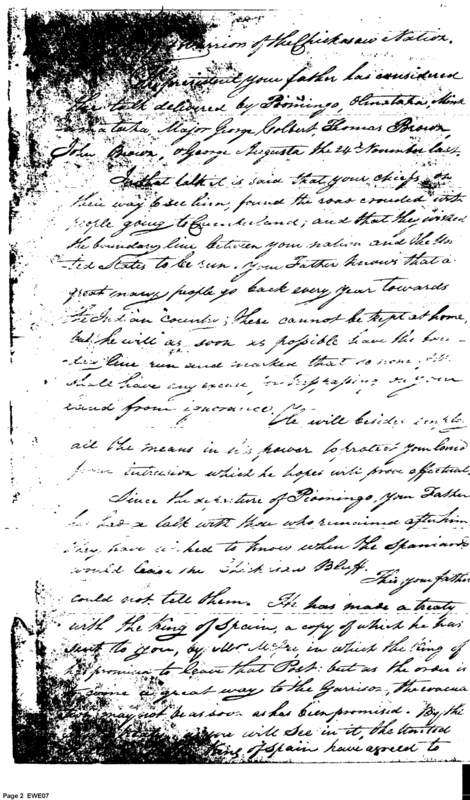 Warriors of the Chickasaw Nation.
The president your father has considered
the talk delivered by Piomingo,
Major George Colbert, Thomas Brown,
John Brown, & George Augusta the 24th November last.
In that talk it is said that your chiefs, on
their way to see him, found the road crowded with
people going to Cumberland; and that they wished
the boundary line between your nation and the Uni-
ted States to be run. Your Father knows that a
great many people go back every year towards
the Indian Country; these cannot be kept at home,
but he will as soon as possible have the boun-
dary line run and marked that so none
shall have any excuse for trespassing on your
land from ignorance. He will besides employ
all the means in his power to protect your land
from intrusion which he hopes will prove effectual.
Since the departure of Piomingo, your Father
has had a talk with those who remained after him.
They have wished to know when the Spaniards
would leave the Chickasaw Bluff. This your father
could not tell them. He has made a treaty
with the King of Spain, a copy of which he has
sent to you, by in which the King of
promises to leave that Post: but as the order is
to come a great way to the Garrison, the evacua
tion may not be as soon as has been promised. By the
you will see in it, the United
King of Spain have agreed to
Page 2 EWE07